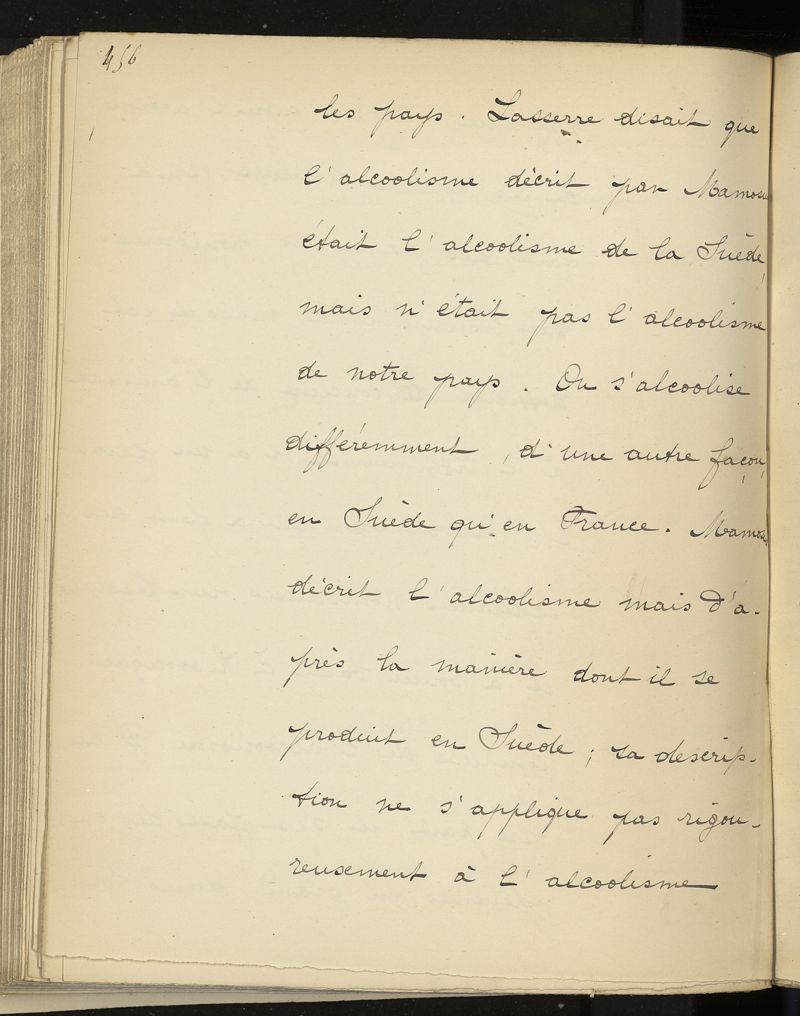 456
les pays. Lasserre disait que
l'alcoolisme décrit par
était l'alcoolisme de la Suède,
mais n'était pas l'alcoolisme
de notre pays. On s'alcoolise
différemment, d'une autre façon,
en Suède qu'en France.
décrit l'alcoolisme mais d'a-
près la manière dont il se
produit en Suède; sa descrip-
tion ne s'applique pas rigou-
reusement à l'alcoolisme